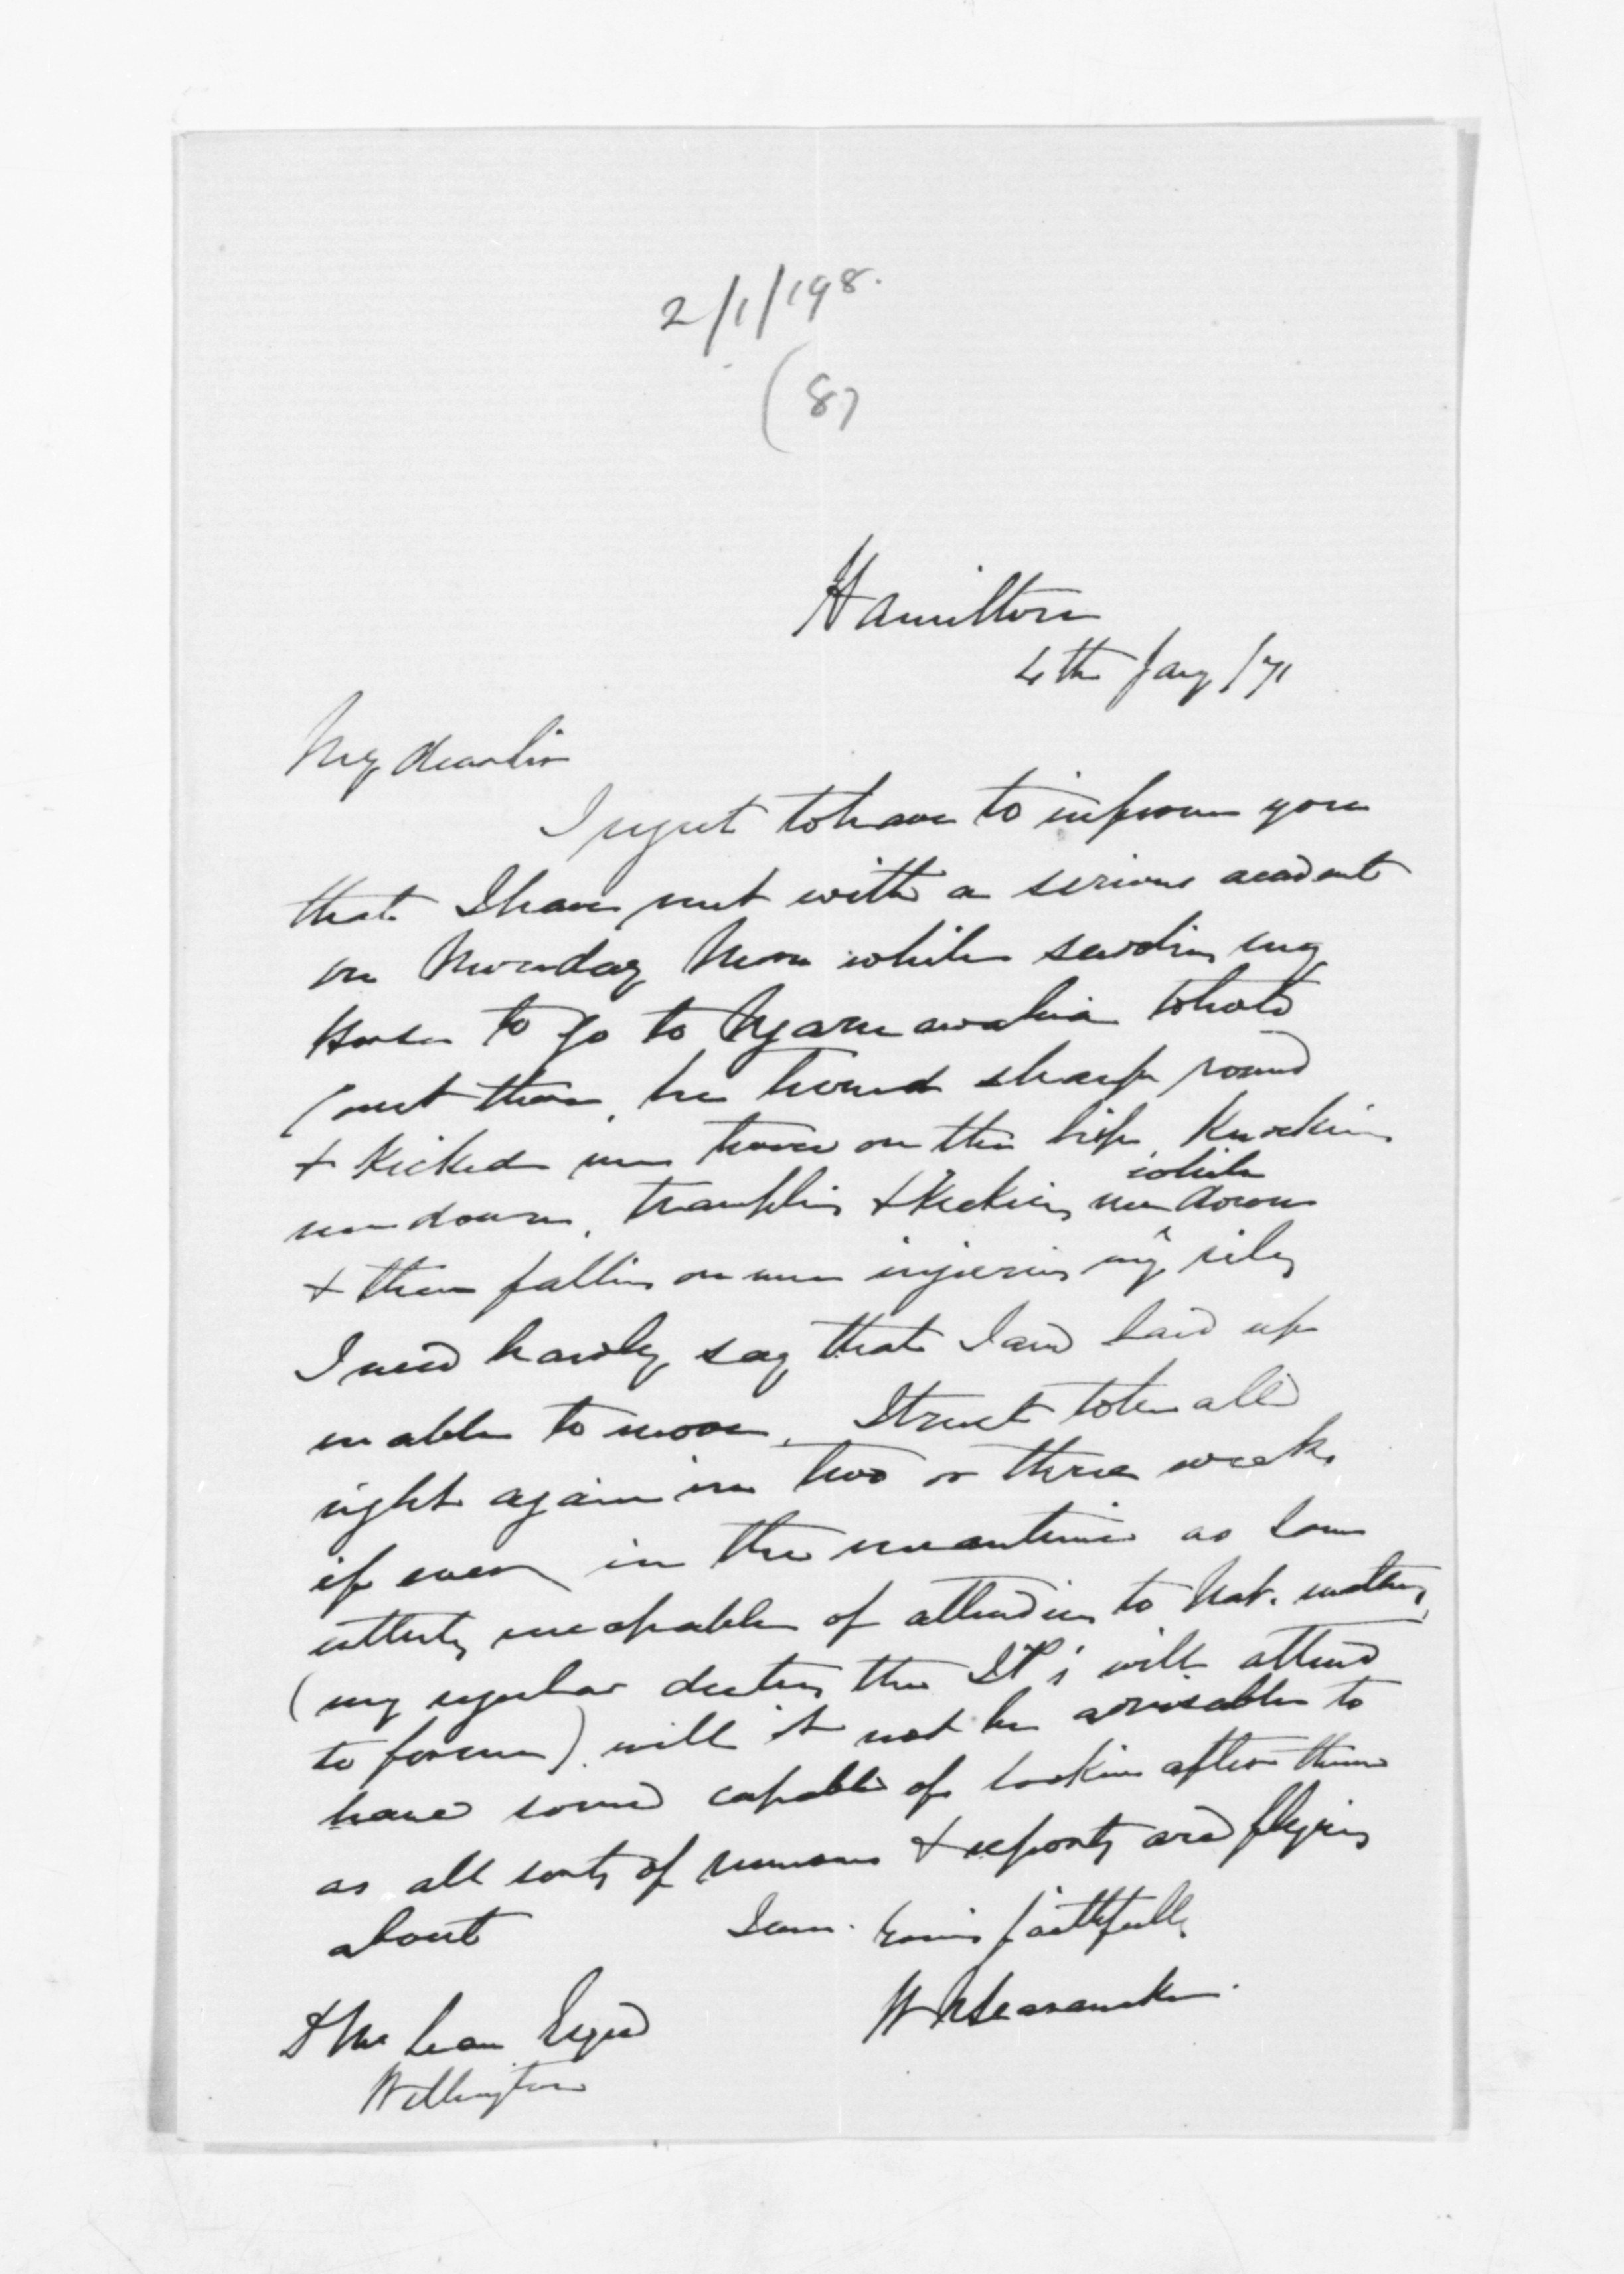 2/1/198.
(8)
Hamilton
4th Jany /71
My dear Sir
I regret to have to inform you
that I have met with a serious accident
on Monday Morn while sadling my
Horse to go to Ngaruawahia to hold
Court there, he turned sharp round
& Kicked me twice on the hip Knocking
me down, trampling & Kicking me while down
& then falling on me injuring my ribs
I need hardly say that I am laid up
unable to move, I trust to be all
right again in two or three weeks
if ever, in the meantime as I am
utterly incapable of attending to Nat. matters,
(my regular duties the JP's will attend
to for me) will it not be advisable to
have some capable of looking after them
as all sorts of rumours & reports are flying
about I am. Yours faithfully
W N Searancke.
D McLean Esqre
Wellington